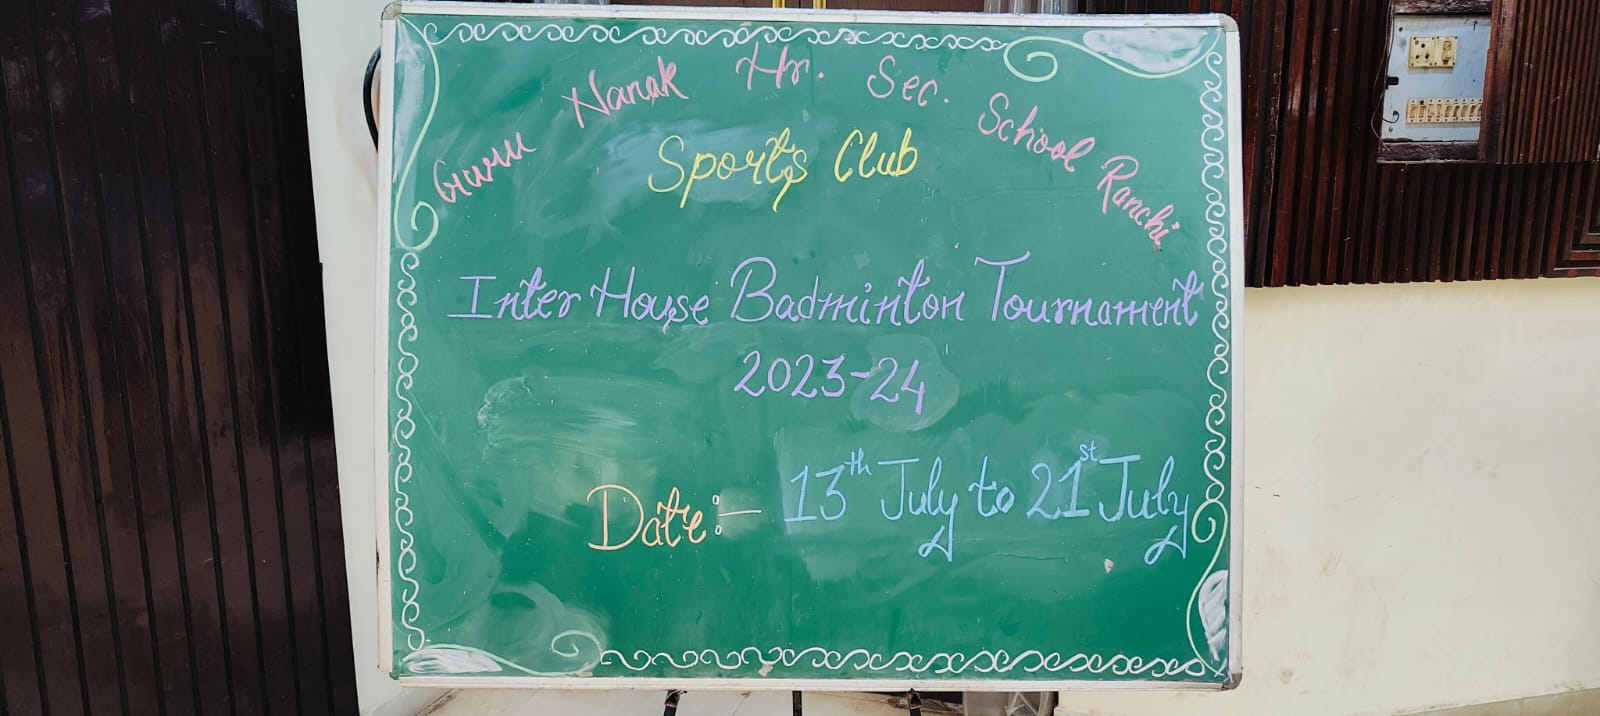 Guru Nanak Hr. Sec. School Ranchi
Sports Club
Inter House Badminton Tournament
2023-24
Date:- 13th July to 21st July